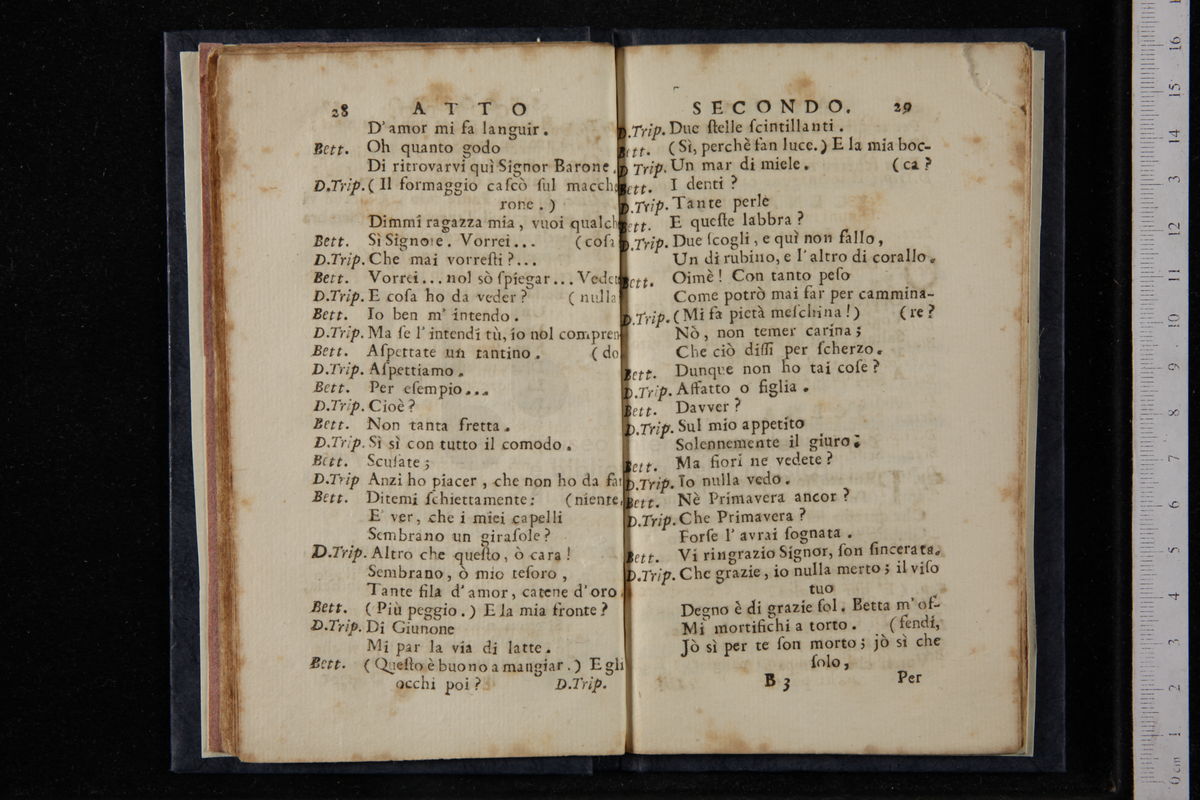 28 ATTO
D'amor mi fa languir.
Bett. Oh quanto godo
Di ritrovarvi quì Signor Barone.
D.Trip. (Il formaggio caſcò ſul macche
rone.)
Dimmi ragazza mia, vuoi qualch
Bett. Sì Signore. Vorrei... (coſa
D.Trip. Che mai vorreſti?...
Bett. Vorrei... nol sò ſpiegar... Vedet
D.Trip. E coſa ho da veder? (nulla
Bett. Io ben m'intendo.
D.Trip. Ma ſe l'intendi tù, io nol compren
Bett. Aſpettate un tantino. (do
D.Trip. Aſpettiamo.
Bett. Per eſempio...
D.Trip. Cioè?
Bett. Non tanta fretta.
D.Trip. Sì sì con tutto il comodo.
Bett. Scuſate;
D.Trip Anzi ho piacer, che non ho da far
Bett. Ditemi ſchiettamente: (niente.
E ver, che i miei capelli
Sembrano un giraſole?
D.Trip. Altro che queſto, ò cara!
Sembrano, ò mio teſoro,
Tante fila d'amor, catene d'oro.
Bett. (Più peggio.) E la mia fronte?
D.Trip. Di Giunone
Mi par la via di latte.
Bett. (Queſto è buono a mangiar.) E gli
occhi poi? D.Trip.
SECONDO. 29
D.Trip. Due ſtelle ſcintillanti.
Bett. (Sì, perchè fan luce.) E la mia boc-
D Trip. Un mar di miele. (ca?
Bett. I denti?
D.Trip. Tante perle
Bett. E queſte labbra?
D.Trip. Due ſcogli, e quì non fallo,
Un di rubino, e l'altro di corallo.
Bett. Oimè! Con tanto peſo
Come potrò mai far per cammina-
D.Trip. (Mi fa pietà meſchina!) (re?
Nò, non temer carina;
Che ciò diſſi per ſcherzo.
Bett. Dunque non ho tai coſe?
D.Trip. Affatto o figlia.
Bett. Davver?
D.Trip. Sul mio appetito
Solennemente il giuro:
Bett. Ma fiori ne vedete?
D.Trip. Io nulla vedo.
Bett. Nè Primavera ancor?
D.Trip. Che Primavera?
Forſe l'avrai ſognata.
Bett. Vi ringrazio Signor, ſon ſincerata.
D.Trip. Che grazie, io nulla merto; il viſo
tuo
Degno è di grazie ſol. Betta m'of-
Mi mortifichi a torto. (fendi,
Jò sì per te ſon morto; jò sì che
ſolo,
B 3 Per